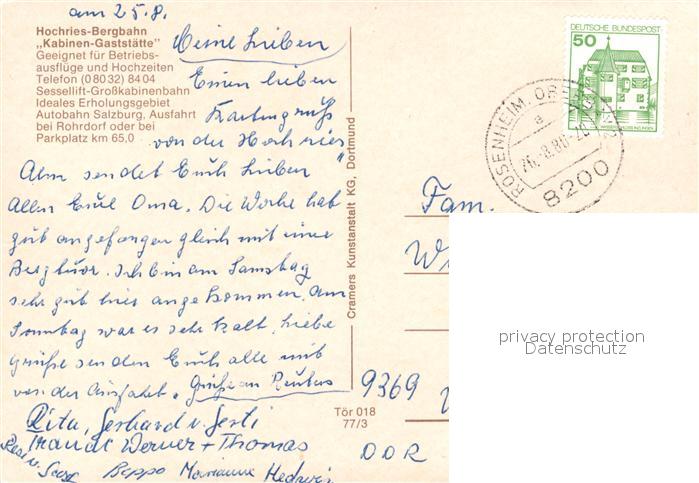 am 25.8.
Hochries-Bergbahn
„Kabinen-Gaststätte"
Geeignet für Betriebs-
ausflüge und Hochzeiten
Telefon (08032) 8404
Sessellift-Großkabinenbahn
Ideales Erholungsgebiet
Autobahn Salzburg, Ausfahrt
bei Rohrdorf oder bei
Parkplatz km 65,0
Meine Lieben
Einen lieben
Kartengruß
von der Hochries
Alm sendet Euch Lieben
Allen Eure Oma. Die Woche hat
gut angefangen gleich mit einer
Bergtour. Ich bin am Samstag
sehr gut hier angekommen. Am
Sonntag war es sehr kalt, liebe
Grüße senden Euch alle mit
von der Ausfahrt.
Rita, Gerhard u.
Werner + Thomas
Beppo Marianne Hedwig
Cramers Kunstanstalt KG, Dortmund
Tör 018
77/3
50
DEUTSCHE BUNDESPOST
ROSENHEIM, OBERBAY
a
26.-8.80-20
8200
Fam.
privacy protection
Datenschutz
9369
DDR